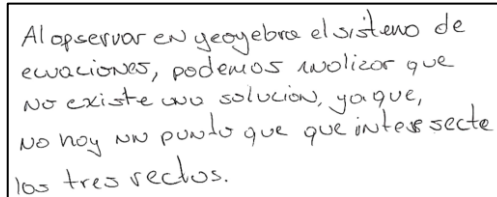 Al opservar en geogebra el sistema de
ecuaciones, podemos analizar que
no existe una solución, ya que,
no hay un punto que que intersecte
las tres rectas.